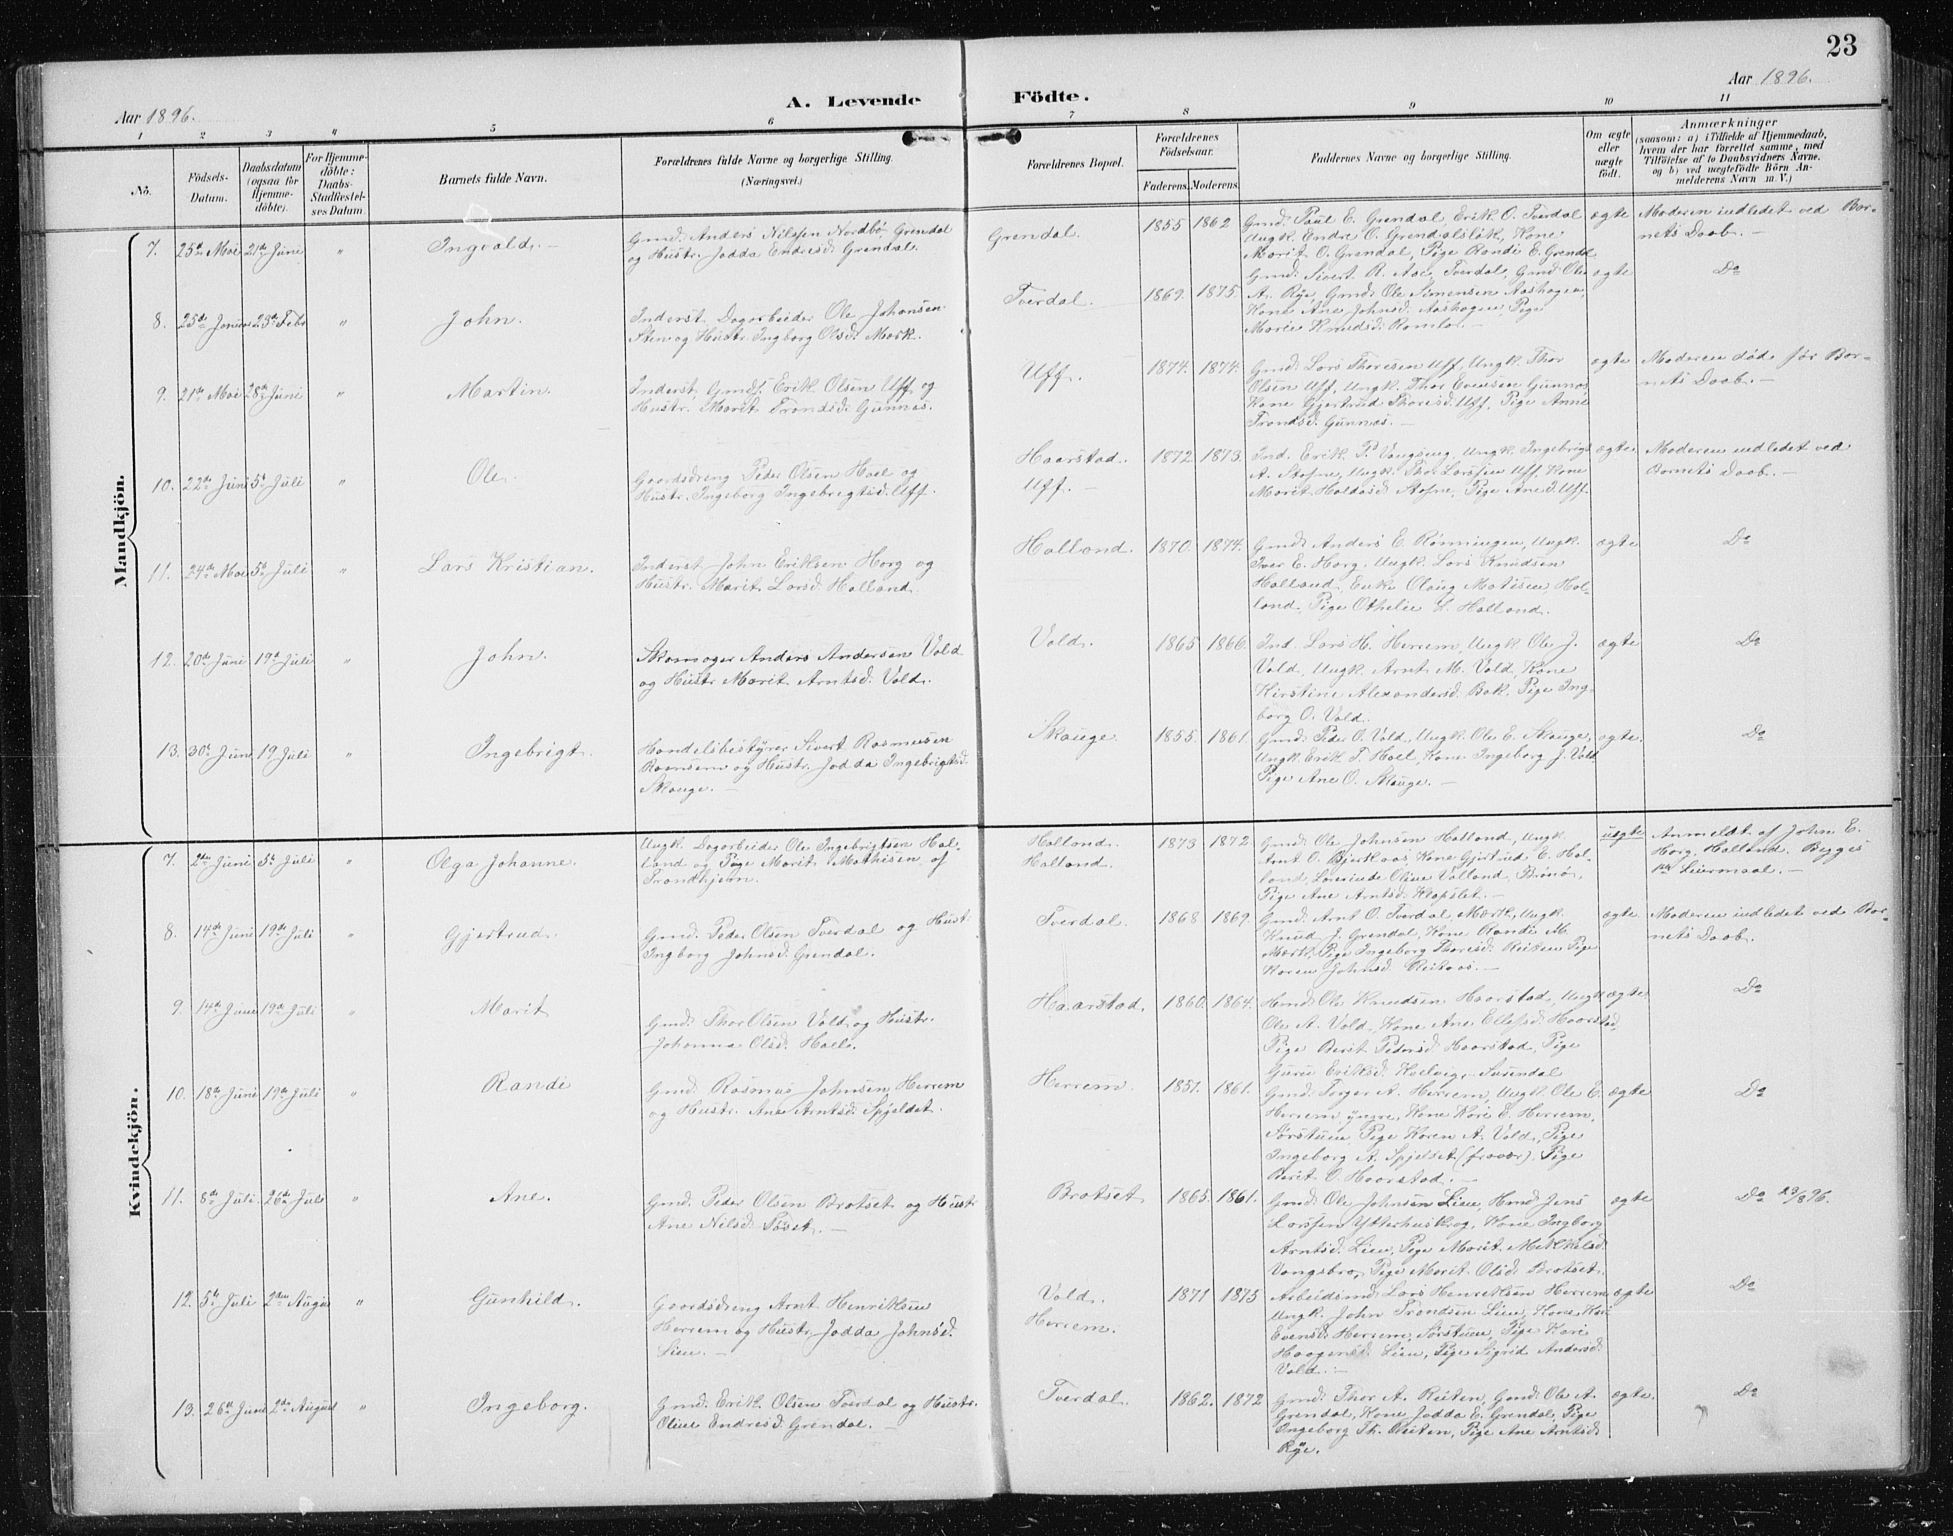 23
Aar 1896.
A. Levende Födte.
Aar 1896.
1 2 3 4 5 6 7 8 9 10 11
No.
Födsels-Datum.
Daabsdatum (ogsaa for Hjemme-döbte).
For Hjemme-döbte: Daabs-Stadfæstel-ses Datum
Barnets fulde Navn.
Forældrenes fulde Navne og borgerlige Stilling.
(Næringsvei.)
Forældrenes Bopæl.
Forældrenes Födselsaar.
Faderens. Moderens.
Faddernes Navne og borgerlige Stilling.
Om ægte eller uægte födt.
Anmærkninger
(saasom: a) i Tilfælde af Hjemmedaab,
hvem der har forrettet samme, med
Tilföielse af to Daabsvidners Navne.
og b) ved uægtefödte Börn An-
melderens Navn m. V.)
Mandkjön.
7. 25de Mai 21de Juni " Ingvald. –
Gmd. Anders Nilssen Nordbø Grendal
og Hustr. Jodda Endresd. Grendal.
Grendal. 1855 1862
Gmd. Paul E. Grendal Erik O. Tverdal
Ungk. Endre O. Grendalslök, Kone
Marit O. Grendal, Pige Randi E. Grendal
ægte
Moderen indledet ved Bar-
nets Daab. –
8. 25de Januar 23de Febr " John.
Inderst, Dagarbeider Ole Johansen
Sten og Hustr. Ingborg Olsd. Mærk.
Tverdal. 1869. 1875.
Gmd. Sivert R. Aae, Tverdal, Gmd. Ole
A. Rye, Gmd. Ole Simensen Aashagen,
Kone Ane Johnsd. Aashagen, Pige
Marie Knudsd. Ramlo. –
ægte
Do
9. 21de Mai 28de Juni " Martin.
Inderst, Gmdf. Erik Olsen Uff og
Hustr. Marit Trondsd. Gunnes.
Uff. 1874. 1874.
Gmd. Lars Thoresen Uff, Ungk. Thor
Olsen Uff, Ungk. Thor Evensen Gunnes
Kone Gjertrud Thoresd. Uff, Pige Anne
Trondsd. Gunnes. –
ægte
Moderen død før Bar-
nets Daab. –
10. 22de Juni 5te Juli " Ole.
Gaardsdreng Peder Olsen Hael og
Hustr. Ingeborg Ingebrigtsd. Uff.
Haarstad.
Uff. –
1872. 1873.
Ind. Erik P. Vangseng, Ungk. Ingebrigt
A. Stofne, Ungk. Thor Larssen Uff, Kone
Marit Haldosd. Stofne, Pige Ane J. Uff.
ægte
Moderen indledet ved
Barnets Daab. –
11. 24de Mai 5te Juli " Lars Kristian.
Inderst John Eriksen Horg og
Hustr. Marit Larsd. Halland.
Halland. 1870. 1874.
Gmd. Anders E. Rønningen, Ungk.
Iver E. Horg. Ungk. Lars Knudsen
Halland, Enke Olaug Matisen, Hal-
land, Pige Othelie L. Halland.
ægte
Do
12. 20de Juni 19de Juli " John.
Skomager Anders Andersen Vold
og Hustr. Marit Arntsd. Vold.
Vold. 1865 1866.
Ind. Lars H. Herrem, Ungk. Ole J.
Vold, Ungk. Arnt M. Vold, Kone
Kirstine Alexandersd. Bak. Pige Ing-
borg O. Vold.
ægte
Do
13. 30te Juni 19 Juli " Ingebrigt.
Handelsbestyrer Sivert Rasmusen
Raansem og Hustr. Jodda Ingebrigtsd.
Skauge. –
Skauge. 1855. 1861.
Gmd. Peder O. Vold, Ungk. Ole E. Skauge,
Ungk. Erik T. Hoel, Kone Ingeborg J. Vold
Pige Ane O. Skauge. –
ægte.
Do
Kvindekjön.
7. 2den Juni 5te Juli " Olga Johanne.
Ungk. Dagarbeider Ole Ingebrigtsen Hal-
land og Pige Marit Mathisen af
Trondhjem.
Halland.
Halland.
1873 1872
Gmd. Ole Johnsen Halland, Ungk.
Arnt O. Bjerkaas, Kone Gjertrud E. Hal-
land, Lærerinde Oline Valland, Brønø,
Pige Ane Arntsd. Klopslet. –
uægte
Anmeldt af John E.
Horg, Halland. Begges
1ste Leiermaal. –
8. 14de Juni 19de Juli " Gjertrud.
Gmd. Peder Olsen Tverdal og Hust.
Ingborg Johnsd. Grendal.
Tverdal. 1868 1869.
Gmd. Arnt O. Tverdal, Mærk, Ungk.
Knud J. Grendal, Kone Randi M.
Mærk, Pige Ingeborg Thoresd. Reiten Pige
Karen Johnsd. Reikaas. –
ægte
Moderen indledet ved Bar-
nets Daab.
9. 14de Juni 19de Juli " Marit
Gmd. Thor Olsen Vold og Hustr.
Johanna Olsd. Halle.
Haarstad. 1860. 1864.
Hmd. Ole Knudsen Haarstad, Ungk.
Ole A. Vold, Kone Ane Ellefsd. Haarstad,
Pige Berit Pedersd. Haarstad, Pige
Guru Eriksd. Kvelveg, Surendal
ægte.
Do
10. 18de Juni 19de Juli " Randi
Gmd. Rasmus Johnsen Herrem
og Hustr. Ane Arntsd. Spjeldet.
Herrem. 1851. 1861.
Gmd. Torger A. Herrem, Ungk. Ole E.
Herrem yngre, Kone Kari E. Herrem,
Sørstuen, Pige Karen A. Vold, Pige
Ingeborg A. Spjelset (fravær). Pige
Berit O. Haarstad. –
ægte
Do
11. 8de Juli. 26de Juli " Ane.
Gmd. Peder Olsen Brotset og Hustr.
Ane Nilsd. Søset. –
Brotset 1865. 1861.
Gmd. Ole Johnsen Lien, Hmd. Jens
Larssen Ytterhuskrog, Kone Ingborg
Arntsd. Lien, Pige Marit Mikkelsd.
Vangsbro, Pige Marit Olsd. Brotset.
ægte
Do 23/8 96.
12. 5te Juli 2den August " Gunhild.
Gaardsdreng Arnt Henriksen
Herrem og Hustr. Jodda Johnsd.
Lien. –
Vold.
Herrem.
1871 1875
Arbeidsmd. Lars Henriksen Herrem
Ungk. John Trondsen Lien, Kone Kari
Evensd. Herrem, Sørstuen, Pige Kari
Haagensd. Lien, Pige Sigrid Andersd.
Vold. –
ægte
Do
13. 26de Juni 2den August " Ingeborg.
Gmd. Erik Olsen Tverdal og Hustr.
Oline Endresd. Grendal. –
Tverdal. 1862. 1872
Gmd. Thor A. Reiten, Gmd. Ole A.
Grendal, Kone Jodda E. Grendal, Pige
Ingeborg Th. Reiten, Pige Ane Arntsd.
Rye.
ægte.
Do